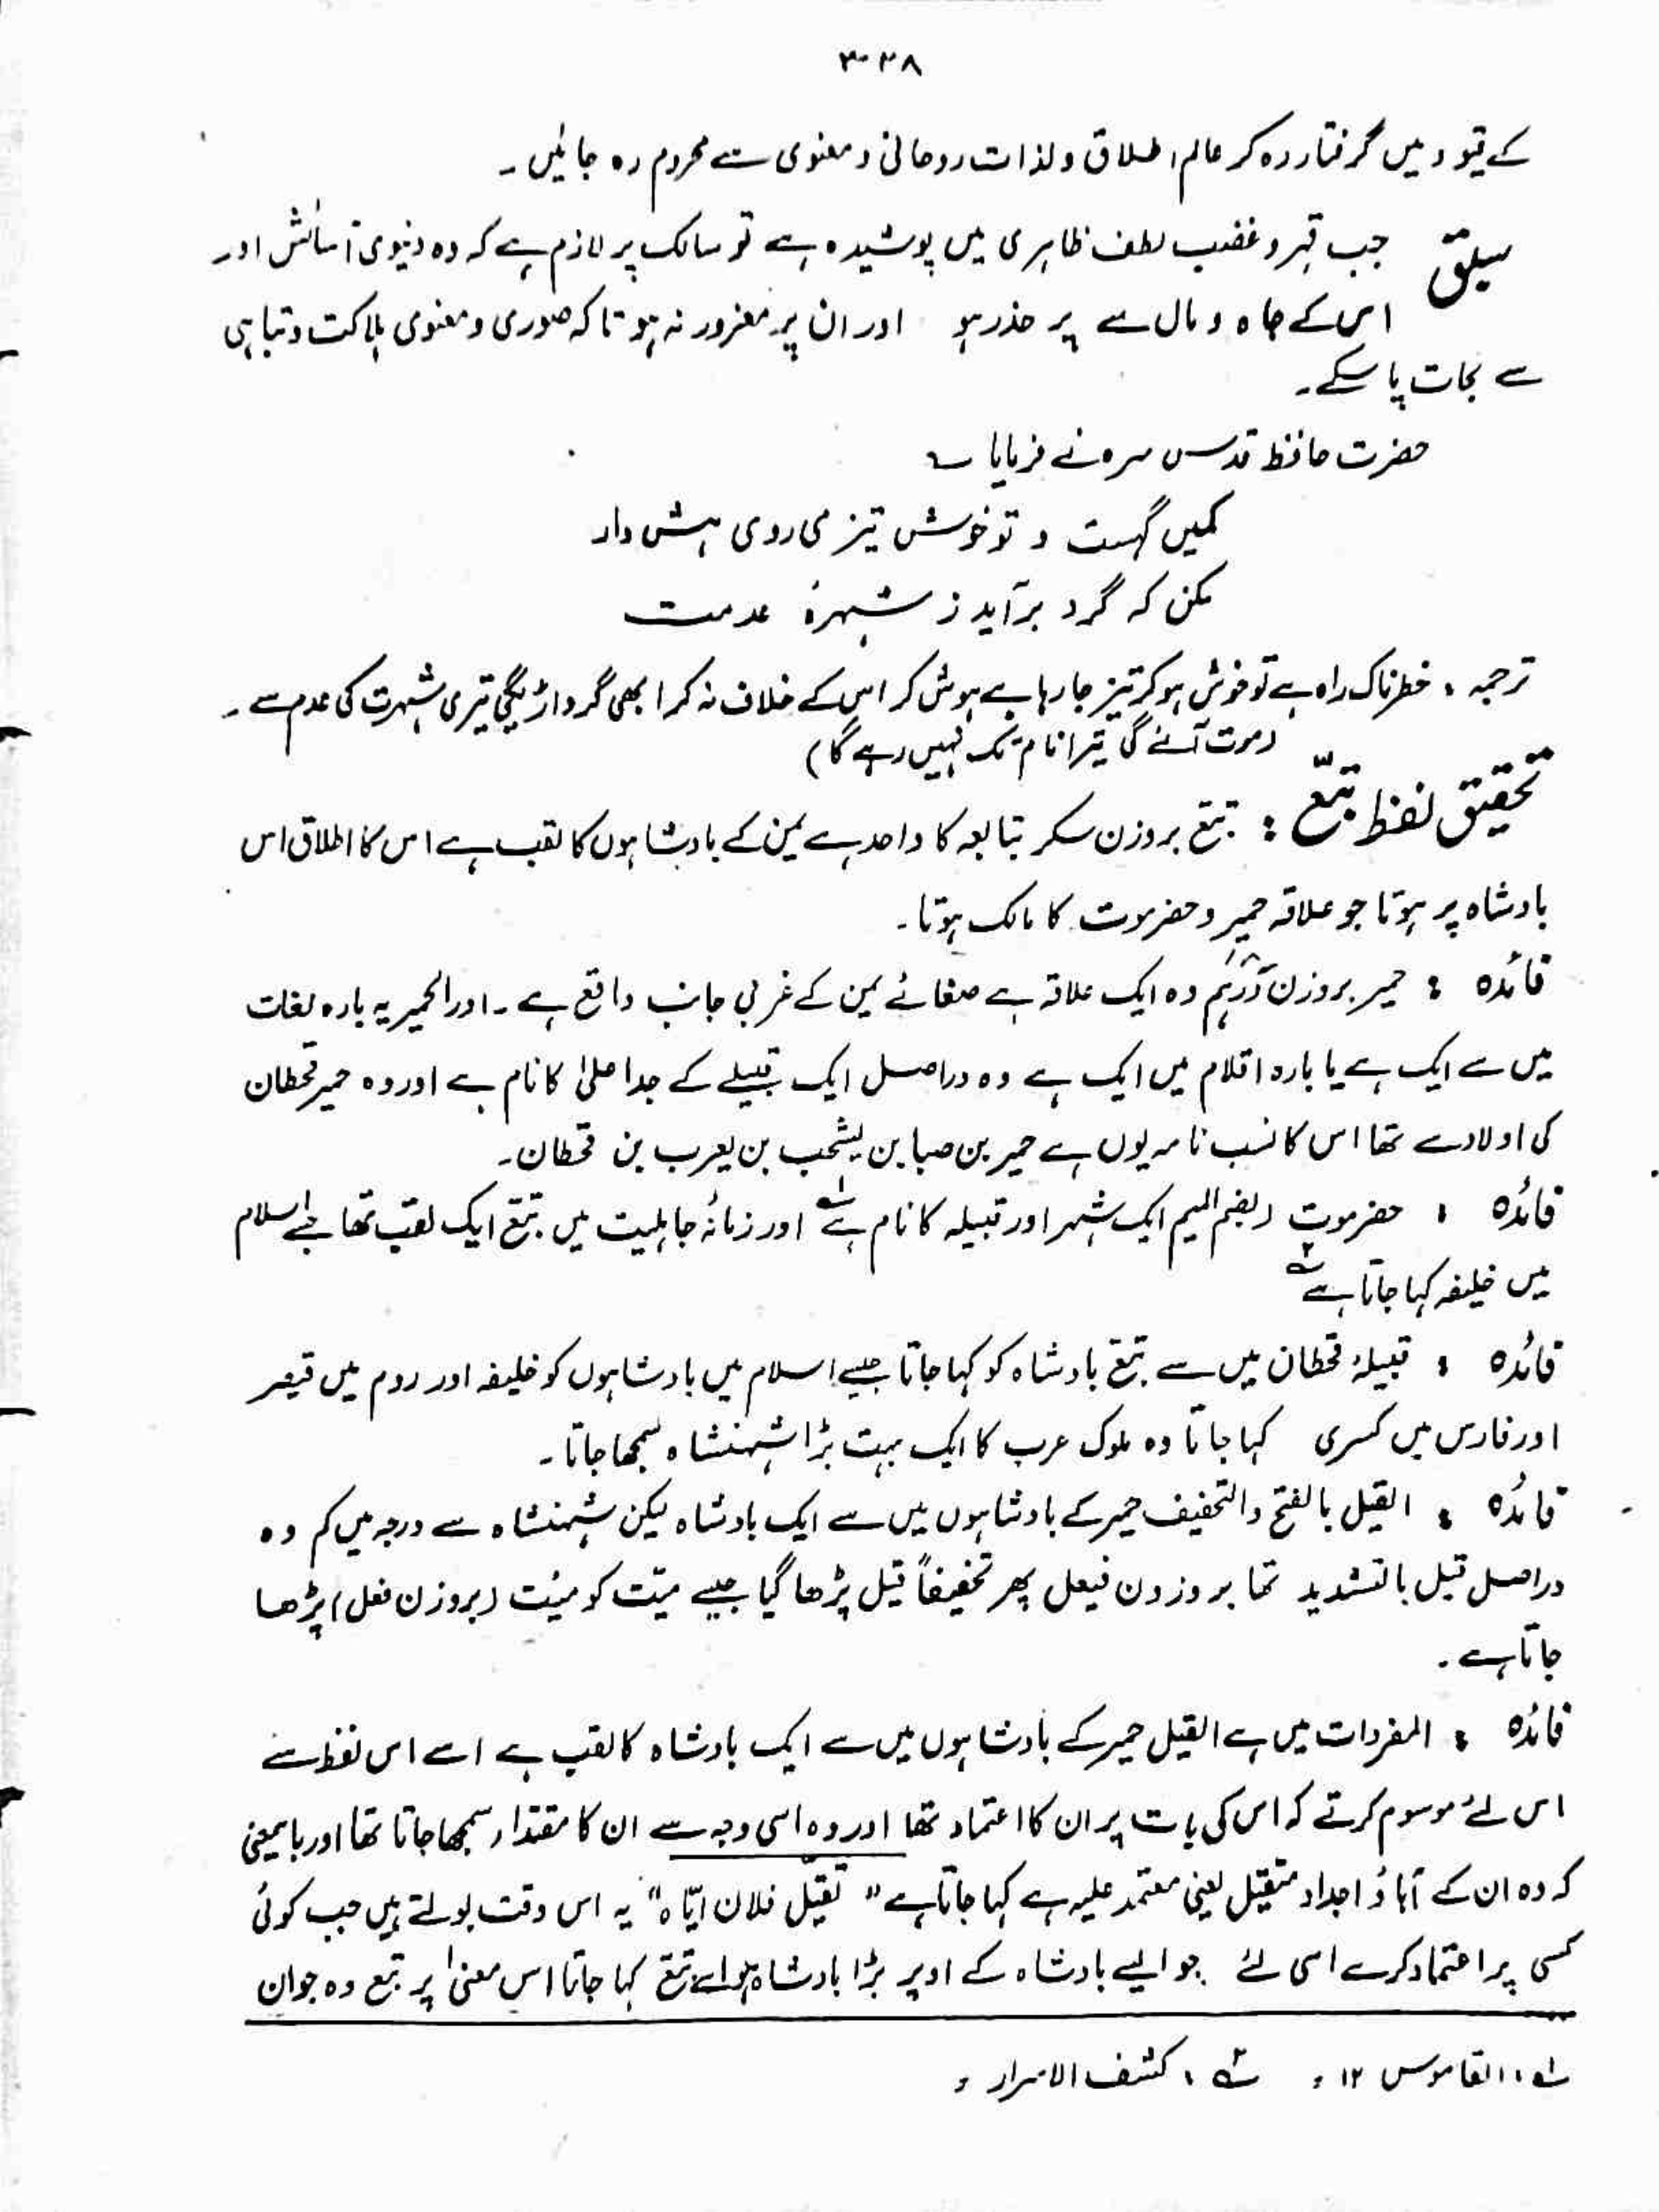 ۳۰۳۸
کے قیود میں گرفتار رہ کر عالم اطلاق ولذات روحانی و معنوی سے محروم رہ جائیں ۔
سبق جب قہر و غضب لطف ظاہری میں پوشیدہ ہے تو سالک پر لازم ہے کہ وہ دنیوی آسائش اور
اس کے جاہ و مال سے پر حذر ہو اور ان پر مغرور نہ ہو تا کہ صوری و معنوی ہلاکت و تباہی
سے نجات پا سکے ۔
حضرت حافظ قدس سرہ نے فرمایا ؎
کمیں گہست و تو خوش تیز می روی ہش دار
مکن کہ گرد برآید ز شہرۂ عدمت
ترجمہ : خطرناک راہ ہے تو خوش ہو کر تیز جا رہا ہے ہوش کر اس کے خلاف نہ کر ابھی گرد اڑیگی تیری شہرت کی عدم سے ۔
(موت آئے گی تیرا نام تک نہیں رہے گا)
تحقیق لفظ تبّع : تبّع بروزن سکر تبابعہ کا واحد ہے یمن کے بادشاہوں کا لقب ہے اس کا اطلاق اس
بادشاہ پر ہوتا جو علاقہ حمیر و حضرموت کا مالک ہوتا ۔
فائدہ : حمیر بروزن درہم وہ ایک علاقہ ہے صنعائے یمن کے غربی جانب واقع ہے ۔ اور الحمیریہ بارہ لغات
میں سے ایک ہے یا بارہ اقلام میں ایک ہے وہ دراصل ایک قبیلے کے جد اعلیٰ کا نام ہے اور وہ حمیر قحطان
کی اولاد سے تھا اس کا نسب نامہ یوں ہے حمیر بن صبا بن یشحب بن یعرب بن قحطان ۔
فائدہ : حضرموت (بضم المیم ایک شہر اور قبیلہ کا نام ہے ؎۱ اور زمانۂ جاہلیت میں تبع ایک لقب تھا جسے اسلام
میں خلیفہ کہا جاتا ہے ؎۲
فائدہ : قبیلۂ قحطان میں سے تبع بادشاہ کو کہا جاتا جیسے اسلام میں بادشاہوں کو خلیفہ اور روم میں قیصر
اور فارس میں کسری کہا جاتا وہ ملوک عرب کا ایک بہت بڑا شہنشاہ سمجھا جاتا ۔
فائدہ : القیل بالفتح والتخفیف حمیر کے بادشاہوں میں سے ایک بادشاہ لیکن شہنشاہ سے درجہ میں کم وہ
دراصل قیل بالتشدید تھا بروزدن فیعل پھر تخفیفاً قیل پڑھا گیا جیسے میّت کو میْت (بروزن فعل) پڑھا
جاتا ہے ۔
فائدہ : المفردات میں ہے القیل حمیر کے بادشاہوں میں سے ایک بادشاہ کا لقب ہے اسے اس لفظ سے
اس لئے موسوم کرتے کہ اس کی بات پر ان کا اعتماد تھا اور وہ اسی وجہ سے ان کا مقتداء سمجھا جاتا تھا اور بایمعنی
کہ وہ ان کے آباؤ اجداد متقیل یعنی معتمد علیہ ہے کہا جاتا ہے " تقیّل فلان ایّاہ " یہ اس وقت بولتے ہیں جب کوئی
کسی پر اعتماد کرے اسی لئے جو ایسے بادشاہ کے اوپر بڑا بادشاہ ہو اسے تبع کہا جاتا اس معنیٰ پر تبع وہ جو ان
؎۱ : القاموس ۱۲ ، ؎۲ : کشف الاسرار ،